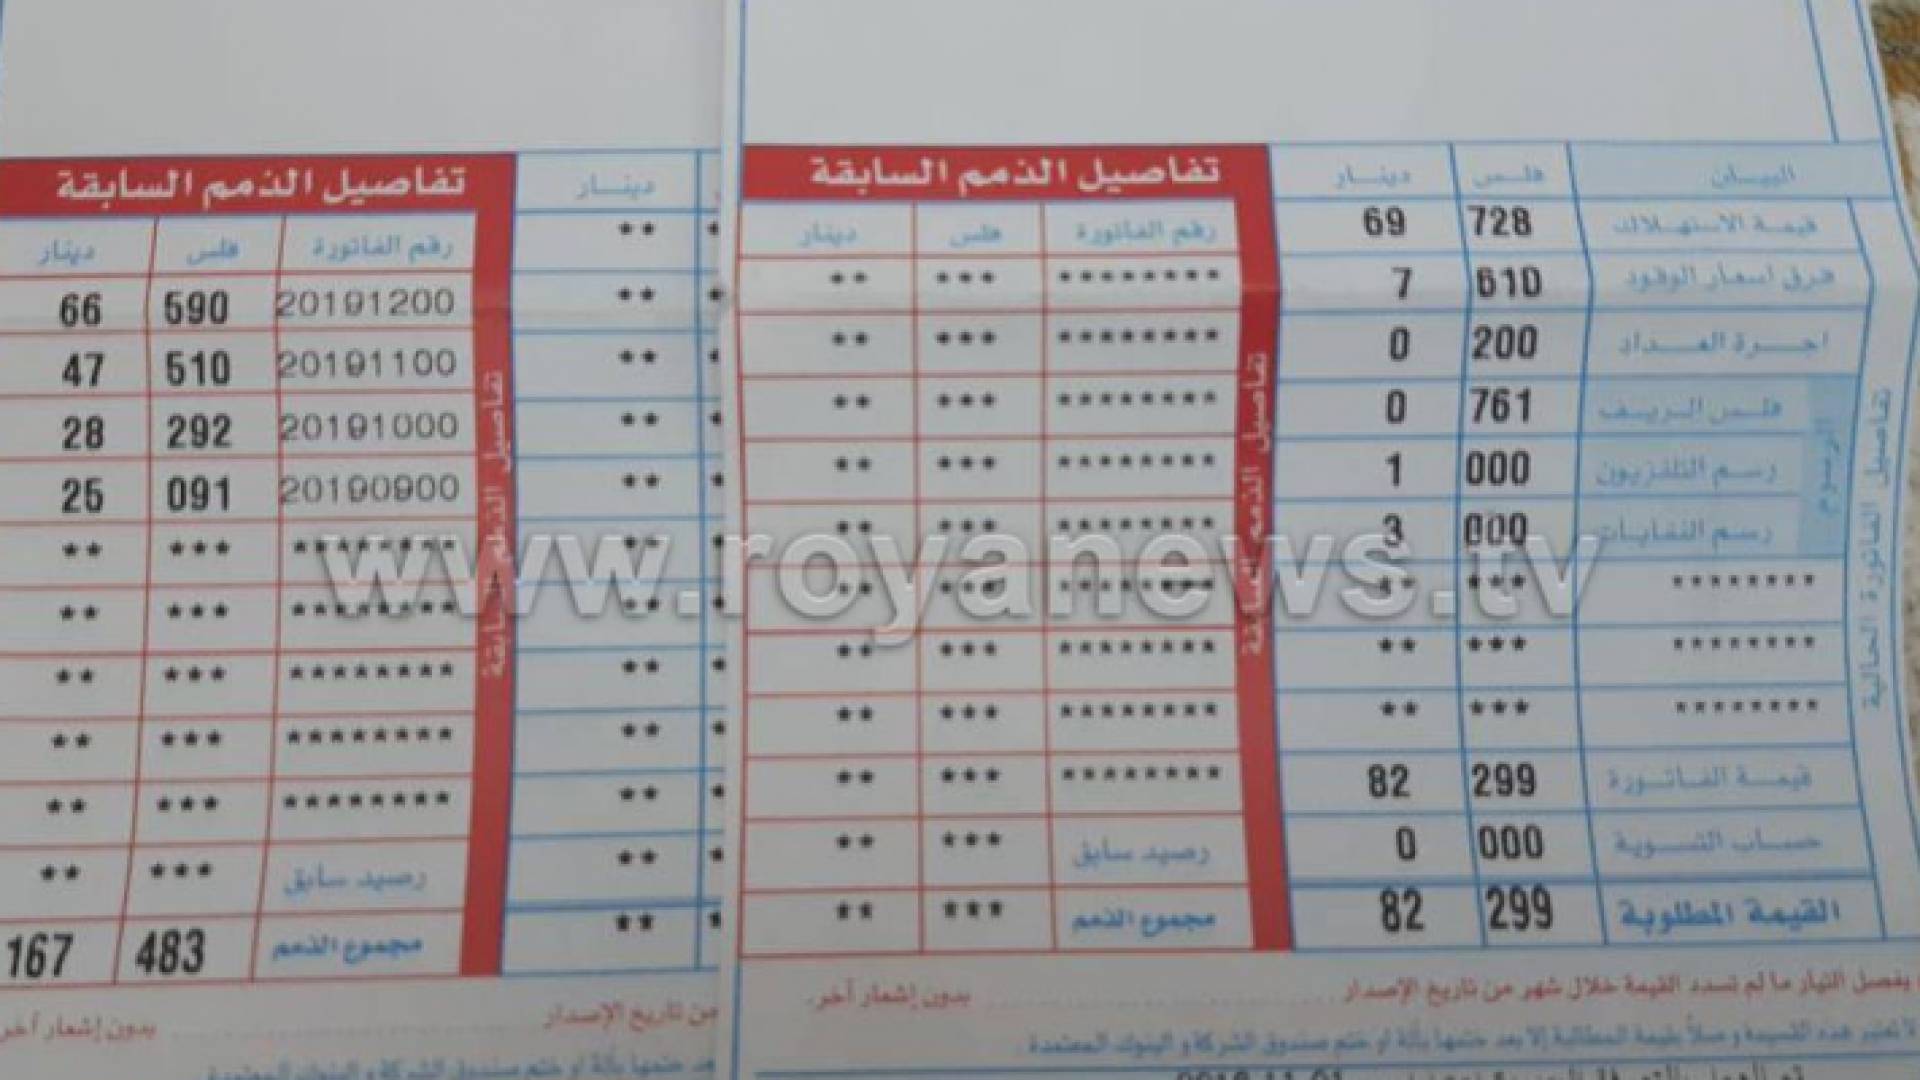 البيان فلس دينار
قيمة الاستهلاك 728 69
فرق اسعار الوقود 610 7
اجرة العداد 200 0
فلس الريف 761 0
رسم التلفزيون 000 1
رسم النفايات 000 3
******** *** **
******** *** **
******** *** **
قيمة الفاتورة 299 82
حساب التسوية 000 0
القيمة المطلوبة 299 82
الرسوم
تفاصيل الفاتورة الحالية
تفاصيل الذمم السابقة
رقم الفاتورة فلس دينار
******** *** **
******** *** **
******** *** **
******** *** **
******** *** **
******** *** **
******** *** **
******** *** **
******** *** **
رصيد سابق *** **
مجموع الذمم *** **
تفاصيل الذمم السابقة
يفصل التيار ما لم تسدد القيمة خلال شهر من تاريخ الإصدار بدون إشعار آخر.
لا تعتبر هذه القسيمة وصلاً بقيمة المطالبة إلا بعد ختمها بآلة او ختم صندوق الشركة و البنوك المعتمدة.
دينار
**
**
**
**
**
**
**
**
**
**
**
**
تفاصيل الذمم السابقة
رقم الفاتورة فلس دينار
20191200 590 66
20191100 510 47
20191000 292 28
20190900 091 25
******** *** **
******** *** **
******** *** **
******** *** **
******** *** **
رصيد سابق *** **
مجموع الذمم 483 167
تفاصيل الذمم السابقة
من تاريخ الإصدار بدون إشعار آخر
بعد ختمها بآلة او ختم صندوق الشركة و البنوك المعتمدة
www.royanews.tv